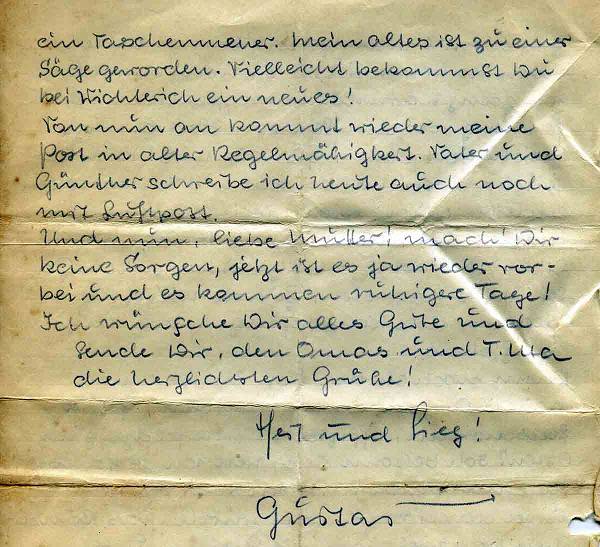 ein Taschenmesser. Mein altes ist zu einer
Säge geworden. Vielleicht bekommst Du
bei Wichterich ein neues!
Von nun an kommt wieder meine
Post in alter Regelmäßigkeit. Vater und
Günther schreibe ich heute auch noch
mit Luftpost.
Und nun, liebe Mutter, mach' Dir
keine Sorgen, jetzt ist es ja wieder vor-
bei und es kommen ruhigere Tage!
Ich wünsche Dir alles Gute und
sende Dir, den Omas und T. Ma
die herzlichsten Grüße!
Heil und Sieg!
Gustav